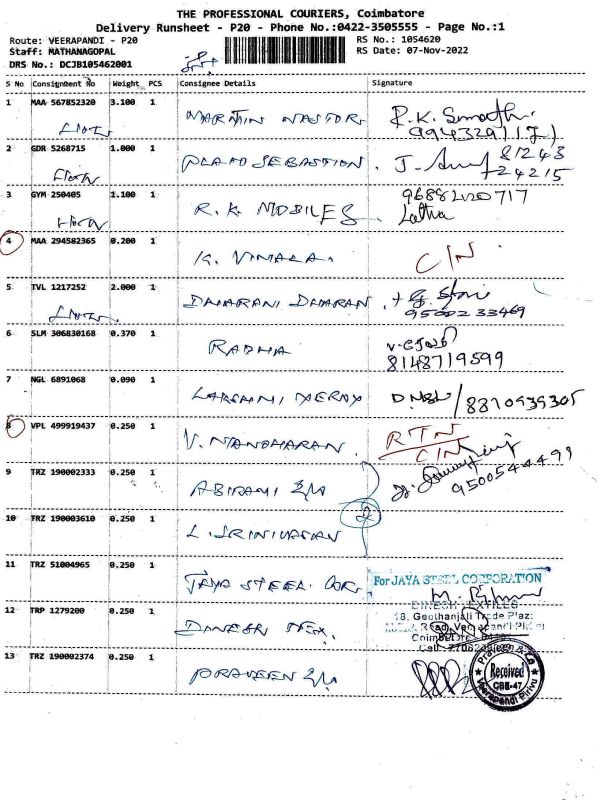 THE PROFESSIONAL COURIERS, Coimbatore
Delivery Runsheet - P20 - Phone No.:0422-3505555 - Page No.:1
Route: VEERAPANDI - P20 RS No.: 1054620
Staff: MATHANAGOPAL RS Date: 07-Nov-2022
DRS No.: DCJB105462001
S No Consignment No Weight PCS Consignee Details Signature
1 MAA 567852320 3.100 1 MARTIN R.K.
2 GDR 5268715 1.000 1 SEBASTION 81243
24215
3 GYM 250405 1.100 1 R.K. MOBILES Latha
4 MAA 294582365 0.200 1 K. VIMALA. C/N
5 TVL 1217252 2.000 1 DHARANI DHARAN
9500233469
6 SLM 306830168 0.370 1 RADHA
8148719599
7 NGL 6891068 0.090 1 8810939305
8 VPL 499919437 0.250 1 V. MANOHARAN. RTN
C/N
9 TRZ 190002333 0.250 1 ABIRAMI 9500544499
2
10 TRZ 190003610 0.250 1 L. SRINIVASAN
11 TRZ 51004965 0.250 1 JAYA STEEL COR. For JAYA STEEL CORPORATION
12 TRP 1279200 0.250 1 DINESH TEX. DINESH TEXTILES
18, Geethanjali Trade Plaza
Road, Veerapandi Pirivu
Coimbatore
Cell:
13 TRZ 190002374 0.250 1 PRAVEEN
Received
CBE-47
Veerapandi Pirivu